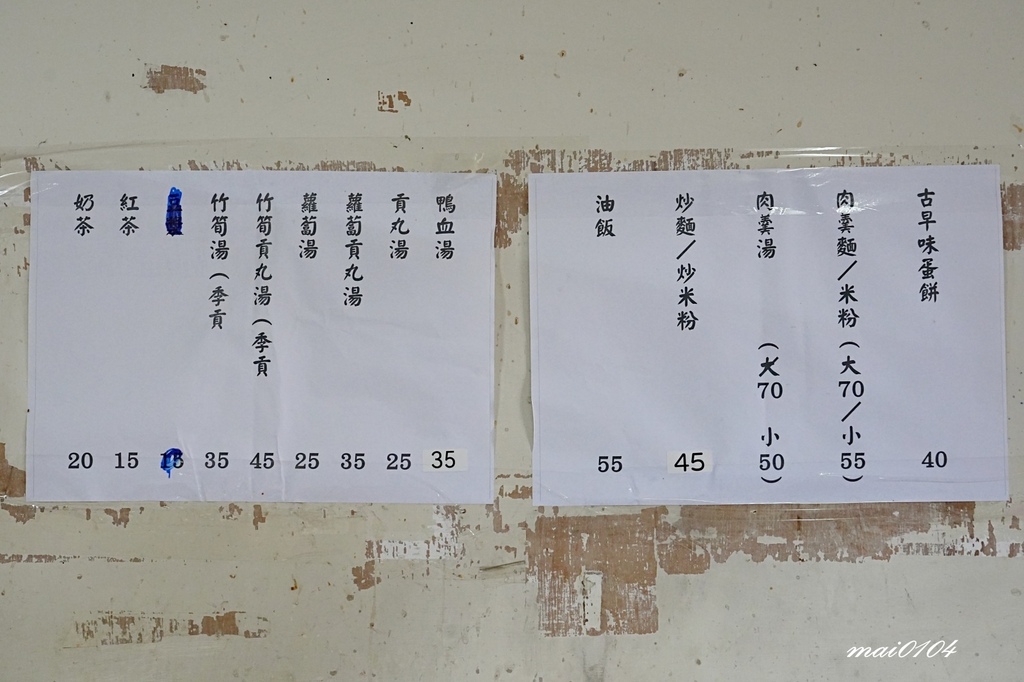 古早味蛋餅 40
肉羹麵/米粉(大70/小55)
肉羹湯(大70 小50)
炒麵/炒米粉 45
油飯 55
鴨血湯 35
貢丸湯 25
蘿蔔貢丸湯 35
蘿蔔湯 25
竹筍貢丸湯(季貢 45
竹筍湯(季貢 35
紅茶 15
奶茶 20
mai0104